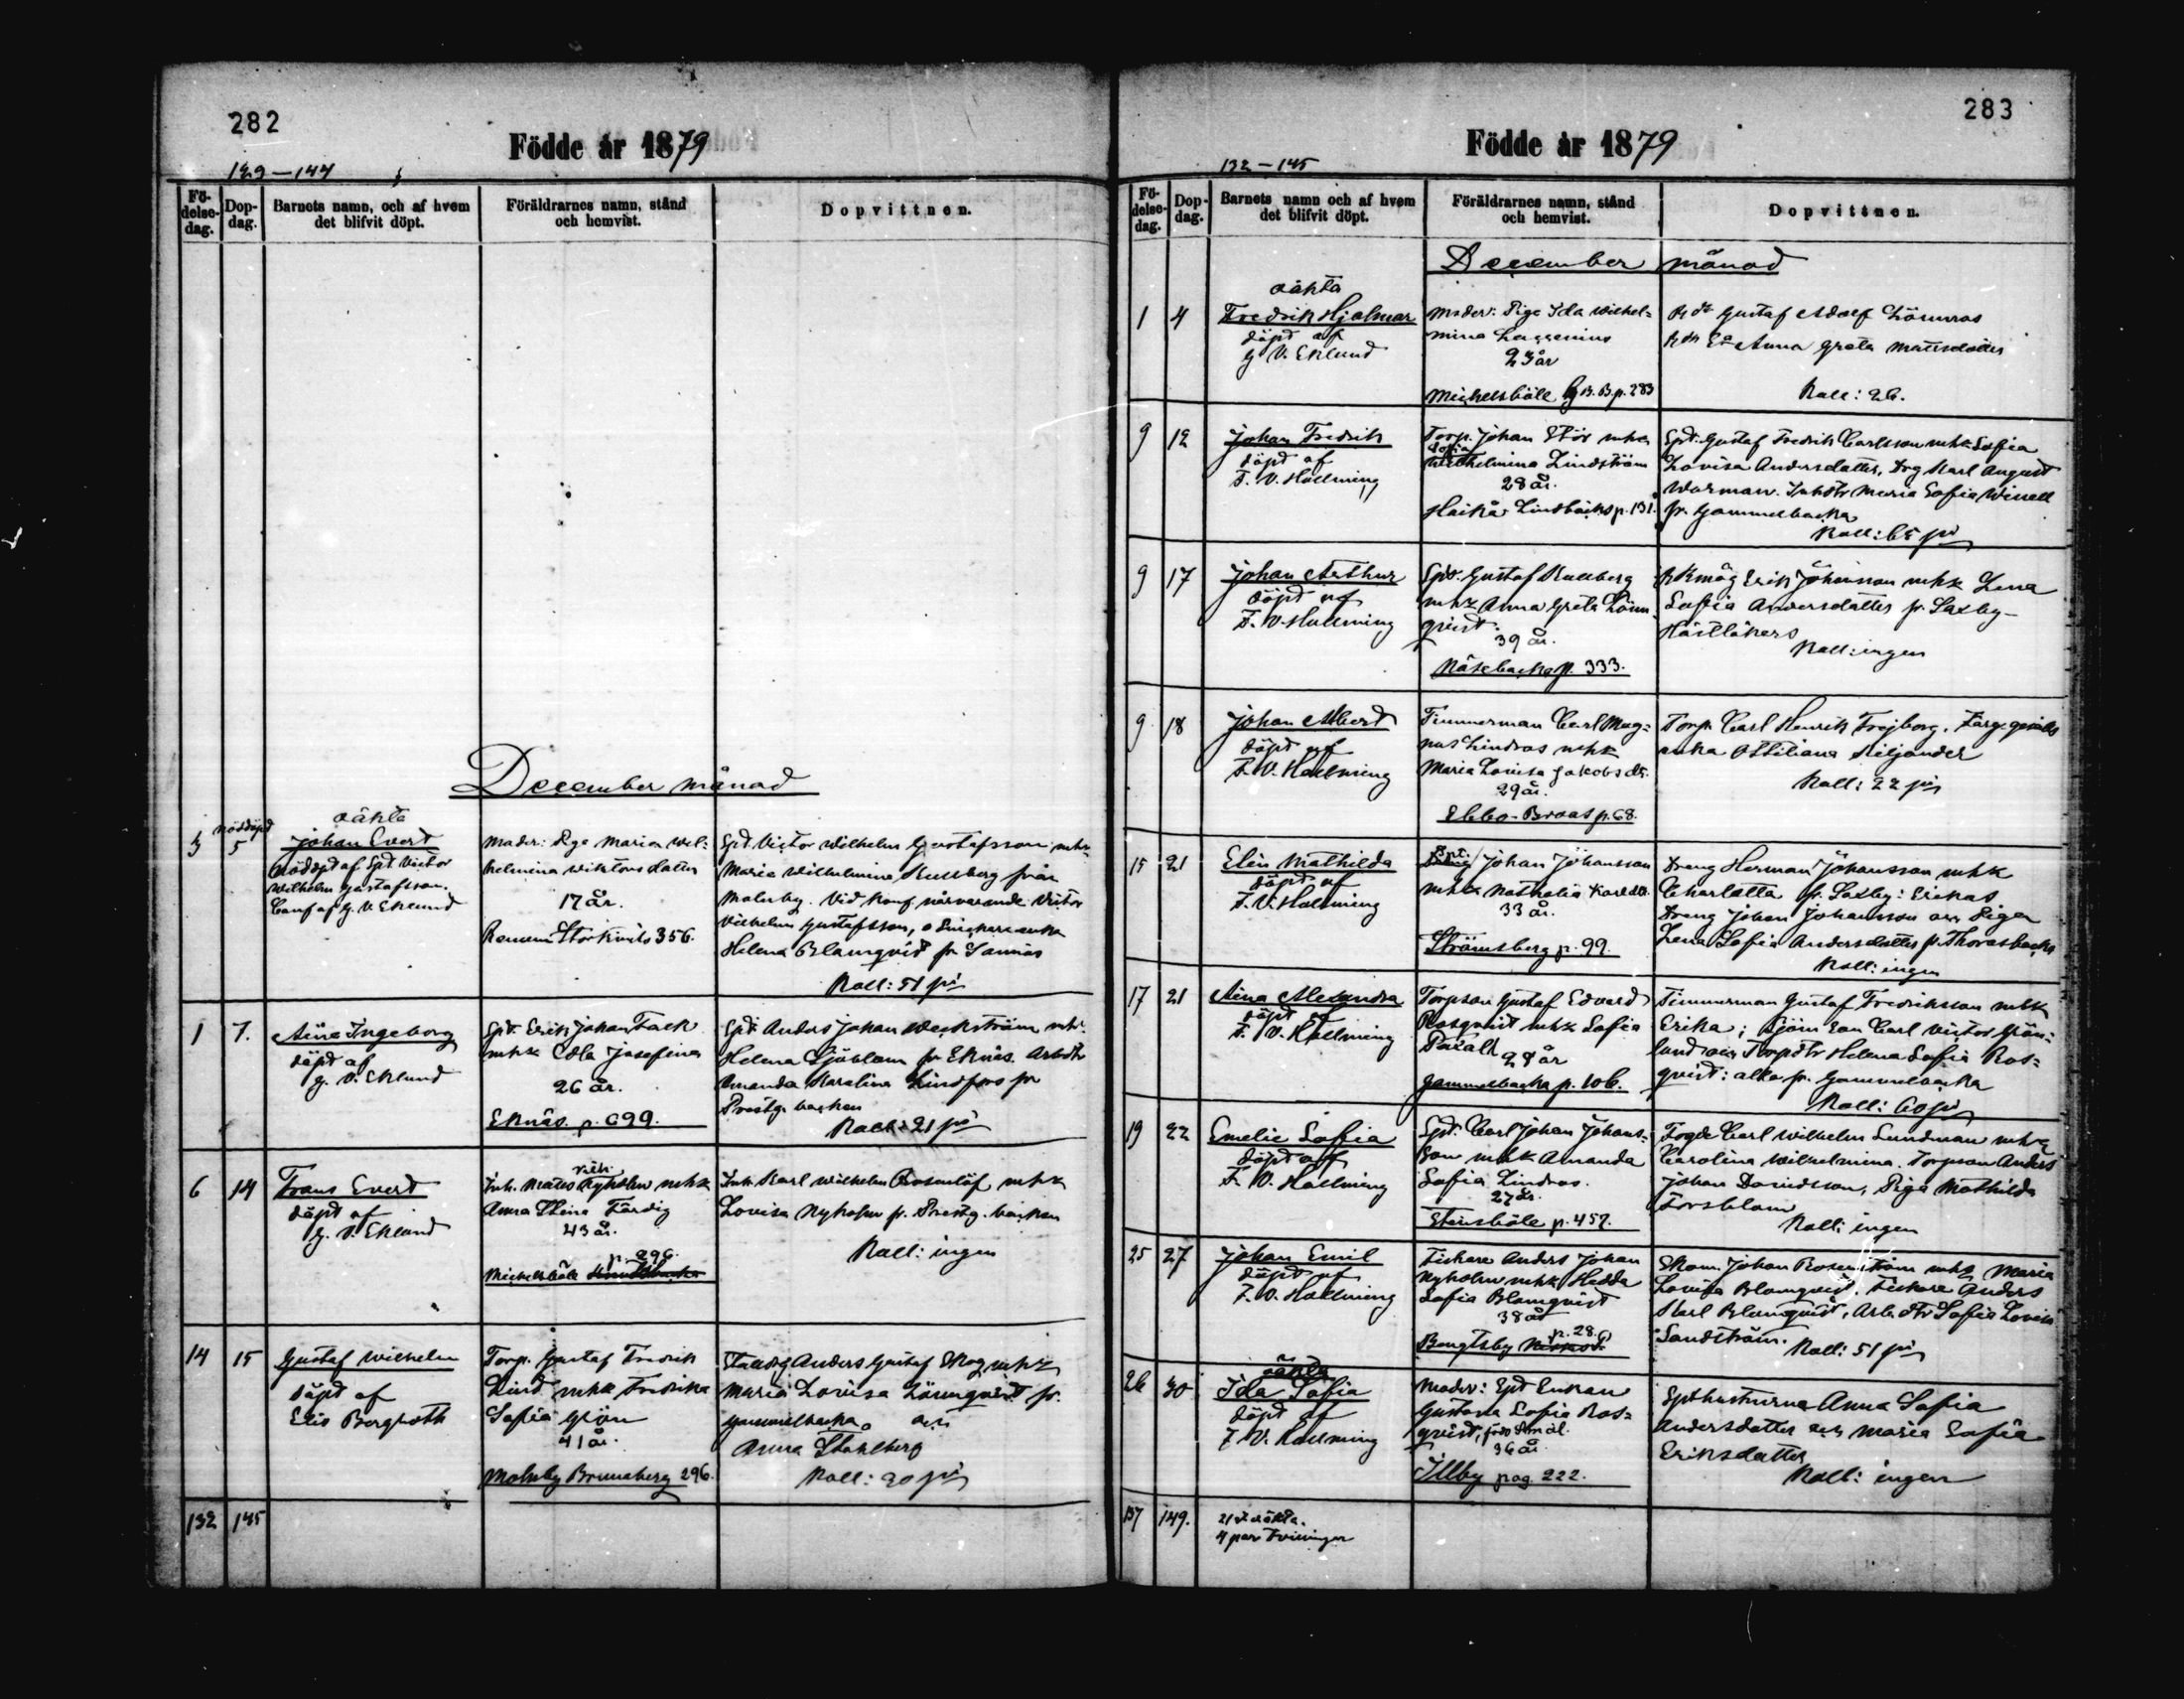 282
Födde år 1879
129-144
Fö-
delse-
dag.
Dop-
dag.
Barnets namn, och af hvem
det blifvit döpt.
Föräldrarnes namn, stånd
och hemvist.
Dopvittnen.
December månad
oäkta
3
nöddöpt
5
Johan Evert
nöddöpt af Spt Victor
Wilhelm Gustafsson.
Conf af G. V. Eklund
Moder: Piga Maria Wil-
helmina Wiktorsdatter
17 år.
Storkvits 356.
Spt. Victor Wilhelm Gustafsson mhu
Maria Wilhelmina Kullberg från
Malmby. Vid konf närvarande Victor
Vilhelm Gustafsson, o
Helena Blomqvist fr Sannäs
Koll: 51 pi
1
7.
Aina Ingeborg
döpt af
G. V. Eklund
Spt. Erik Johan Falk
mhk Eda Josefina
26 år.
Eknäs. p. 699.
Spt. Anders Johan Weckström mh
Helena Sjöblom fr Eknäs. Arbdtr
Amanda Karolina Lindfors fr
Prestg. backen
Koll: 21 pi
6
14
Frans Evert
döpt af
G. V. Eklund
Inh. Matts Nyholm mhk
Anna Stina Färdig
43 år.
p. 296.
Michelsböle
Inh. Karl Wilhelm Rosenlöf mhk
Lovisa Nyholm fr. Prestg. backen
Koll: ingen
14
15
Gustaf Wilhelm
döpt af
Elis Bergroth
Torp. Gustaf Fredrik
Lind mhk Fredrika
Sofia Grön
41 år.
Malmby Brunaberg 296.
Stalldrg Anders Gustaf Skog mhk
Maria Lovisa Lönnqvist fr.
Gammelbacka och
Anna Stahlberg
Koll: 20 pi
132
145
283
Födde år 1879
132-145
Fö-
delse-
dag.
Dop-
dag.
Barnets namn och af hvem
det blifvit döpt.
Föräldrarnes namn, stånd
och hemvist.
Dopvittnen.
December månad
oäkta
1
4
Fredrik Hjalmar
döpt af
G V. Eklund
Moder: Piga Ida Wilhel-
mina Laggenius
23 år
Michelsböle B. B. p. 283
Gustaf Adolf Lönnroos
Anna Greta Mattsdotter
Koll: 26.
9
12
Johan Fredrik
döpt af
F. V. Hallming
Torp. Johan Stör mhk
Sofia
Wilhelmina Lindström
28 år.
Haikå Lindbacks p. 131.
Spt. Gustaf Fredrik Carlsson mhk Sofia
Lovisa Andersdatter, Drg Karl August
Worman. Inhdtr Maria Sofia Winell
fr. Gammelbacka
Koll: 65 pi
9
17
Johan Arthur
döpt af
F. V. Hallming
Spt. Gustaf Kullberg
mhk Anna Greta Lönn-
qvist.
39 år.
Näsebacka p. 333.
Erik Johansson mhk Lena
Sofia Andersdatter fr. Saxby-
Koll: ingen
9
18
Johan Albert
döpt af
F. V. Hallming
Timmerman Carl Mag-
nus Lindroos mhk
Maria Lovisa Jakobsdr.
29 år.
Ebbo-Broas p. 68.
Torp. Carl Henrik Frojborg.
enka Ottiliana Siljander
Koll: 22 pi
15
21
Elin Mathilda
döpt af
F. V. Hallming
Spt.
Johan Johansson
mhk Nathalia Karlsdr.
33 år.
Strömsberg p. 99.
Dreng Herman Johansson mhk
Charlotta fr. Saxby: Erikas
Dreng Johan Johansson och Piga
Lena Sofia Andersdatter fr. Thorasbacka
Koll: ingen
17
21
Aina Alexandra
döpt af
F. V. Hallming
Torpson Gustaf Edvard
Rosqvist mhk Sofia
28 år
Gammelbacka p. 106.
Timmerman Gustaf Fredriksson mhk
Erika; Sjöm son Carl Victor Grön-
lund och Torpdtr Helena Sofia Ros-
qvist: alla fr. Gammelbacka
Koll: 60 pi
19
22
Emelie Sofia
döpt af
F. V. Hallming
Spt. Carl Johan Johans-
son mhk Amanda
Sofia Lindroos.
27 år.
Stensböle p. 457.
Fogde Carl Wilhelm Sundman mhk
Carolina Wilhelmina. Torpson Anders
Johan Davidsson, Piga Mathilda
Forsblom
Koll: ingen
25
27
Johan Emil
döpt af
F. V. Hallming
Fiskare Anders Johan
Nyholm mhk Hedda
Sofia Blomqvist
38 år
p. 28.
Bengtsby
Ekon. Johan Rosenström mhk Maria
Lovisa Blomqvist. Fiskare Anders
Karl Blomqvist, Arb. dtr Sofia Lovisa
Sandström. Koll: 51 pi
oäkta
26
30
Ida Sofia
döpt af
F. V. Hallming
Moder: Spt Enkan
Gustava Sofia Ros-
qvist, född
36 år.
Illby pag. 222.
Spthustrurna Anna Sofia
Andersdatter och Maria Sofia
Eriksdatter
Koll: ingen
137
149.
21 st oäkta.
4 par tvillingar